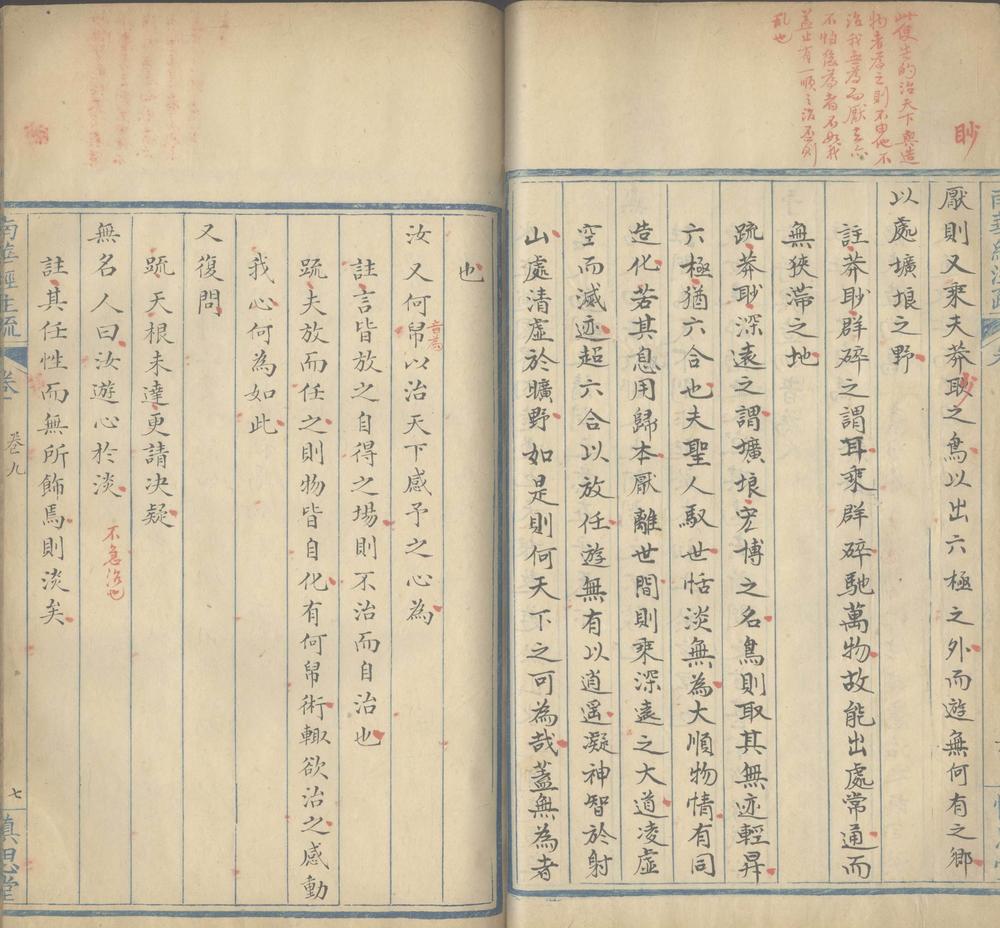 此便去的治天下與造
物者為之則不由他不
治我無為而厭之亦
不怕後為者不如我
蓋止有一順之治否則
乱也
眇
厭則又乘夫莽眇之鳥以出六極之外而遊無何有之鄉
以處壙埌之野
註莽眇群碎之謂耳乘群碎馳萬物故能出處常通而
無狹滯之地
疏莽眇深遠之謂壙埌宏博之名鳥則取其無迹輕昇
六極猶六合也夫聖人馭世恬淡無為大順物情有同
造化若其息用歸本厭離世間則乘深遠之大道凌虛
空而滅迹超六合以放任遊無有以逍遥凝神智於射
山處清虛於曠野如是則何天下之可為哉蓋無為者
也
汝又何帠以治天下感予之心為
音藝
註言皆放之自得之場則不治而自治也
疏夫放而任之則物皆自化有何帠術輙欲治之感動
我心何為如此
又復問
疏天根未達更請决疑
無名人曰汝遊心於淡
不急治也
註其任性而無所飾馬則淡矣
南華經注疏
卷九
七
慎思堂